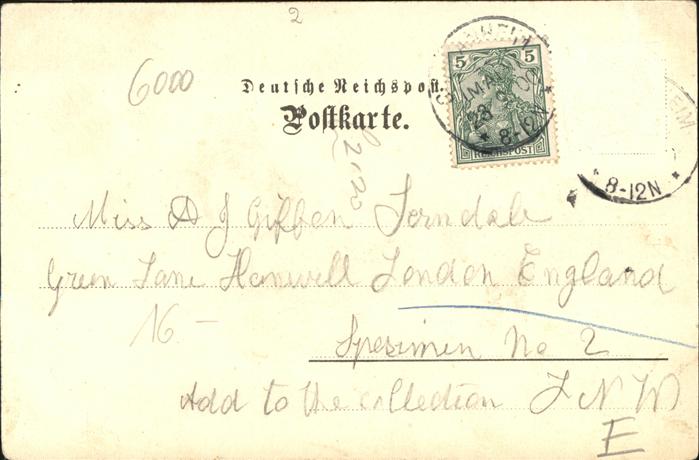 2
6000
Deutsche Reichspost.
Postkarte.
5 5
REICHSPOST
28
8-12N
EIM
8-12N
Miss A J Giffen Ferndale
Green Lane Hanwell London England
16 -
Spesimen No 2
Add to the collection J N W
E